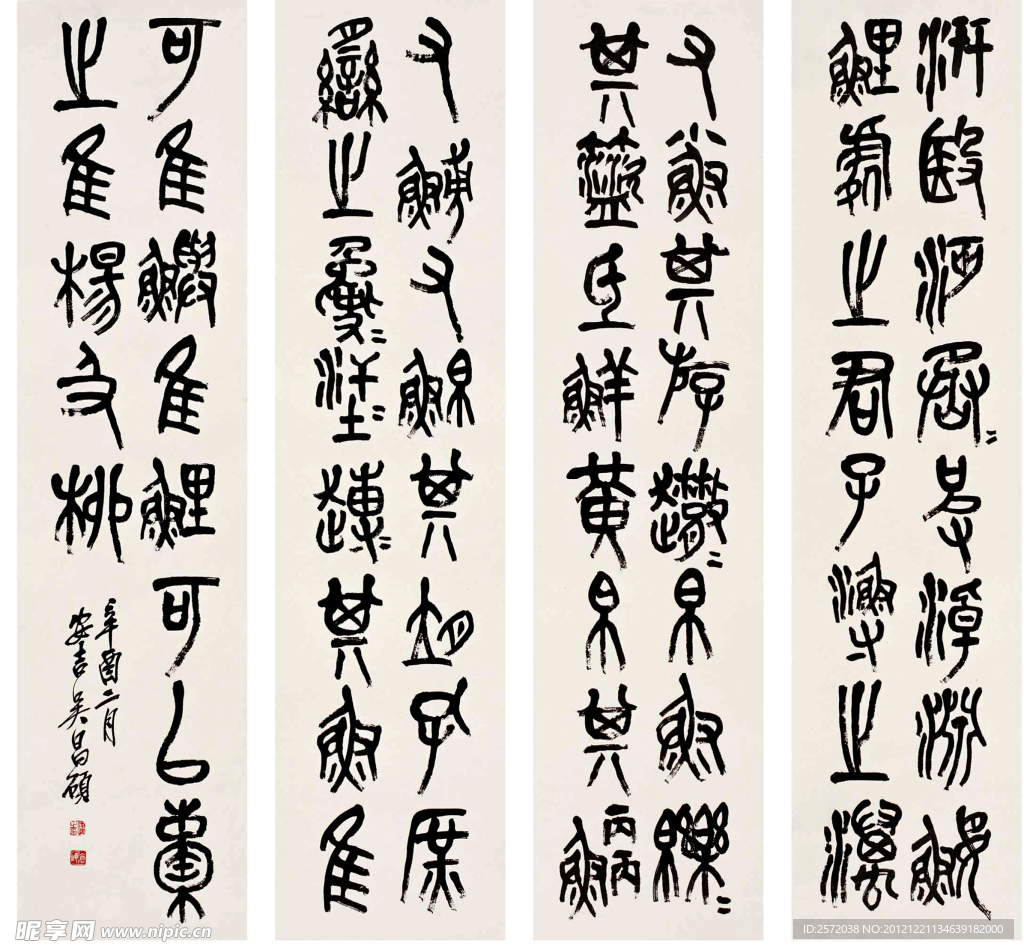 汧殹沔丞皮淖淵鰋
鯉處之君子漁之澫
又小魚其斿趩帛魚皪
其盜氐鮮黃帛其鯾
又鱄又鮊其孔庶
臠之夐汗趙其魚隹
可隹鱮隹鯉可以橐
之隹楊及柳
辛酉二月
安吉吳昌碩
昵享网 www.nipic.cn
ID:2572038 NO:20121221134639182000